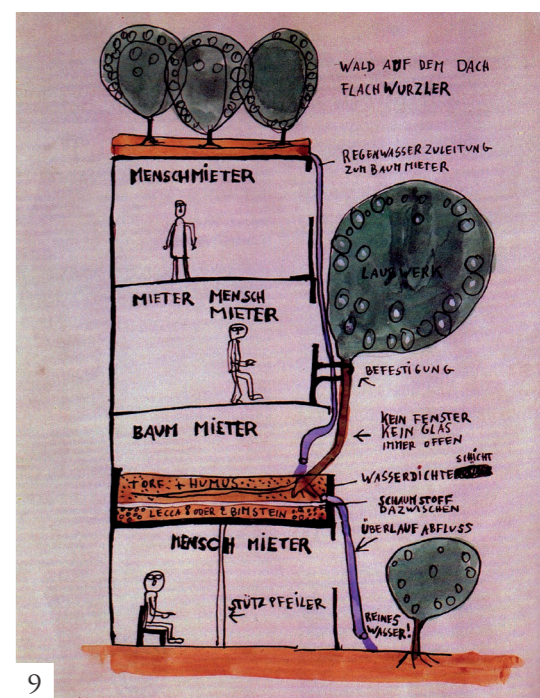 WALD AUF DEM DACH
FLACHWURZLER
REGENWASSERZULEITUNG
ZUM BAUM MIETER
MENSCHMIETER
LAUBWERK
MIETER MENSCH
MIETER
BEFESTIGUNG
KEIN FENSTER
KEIN GLAS
IMMER OFFEN
BAUM MIETER
SCHICHT
WASSERDICHTE
TORF + HUMUS
SCHAUMSTOFF
DAZWISCHEN
LECCA 8 ODER 2 BIMSTEIN
ÜBERLAUF ABFLUSS
MENSCH MIETER
STÜTZPFEILER
REINES
WASSER!
9